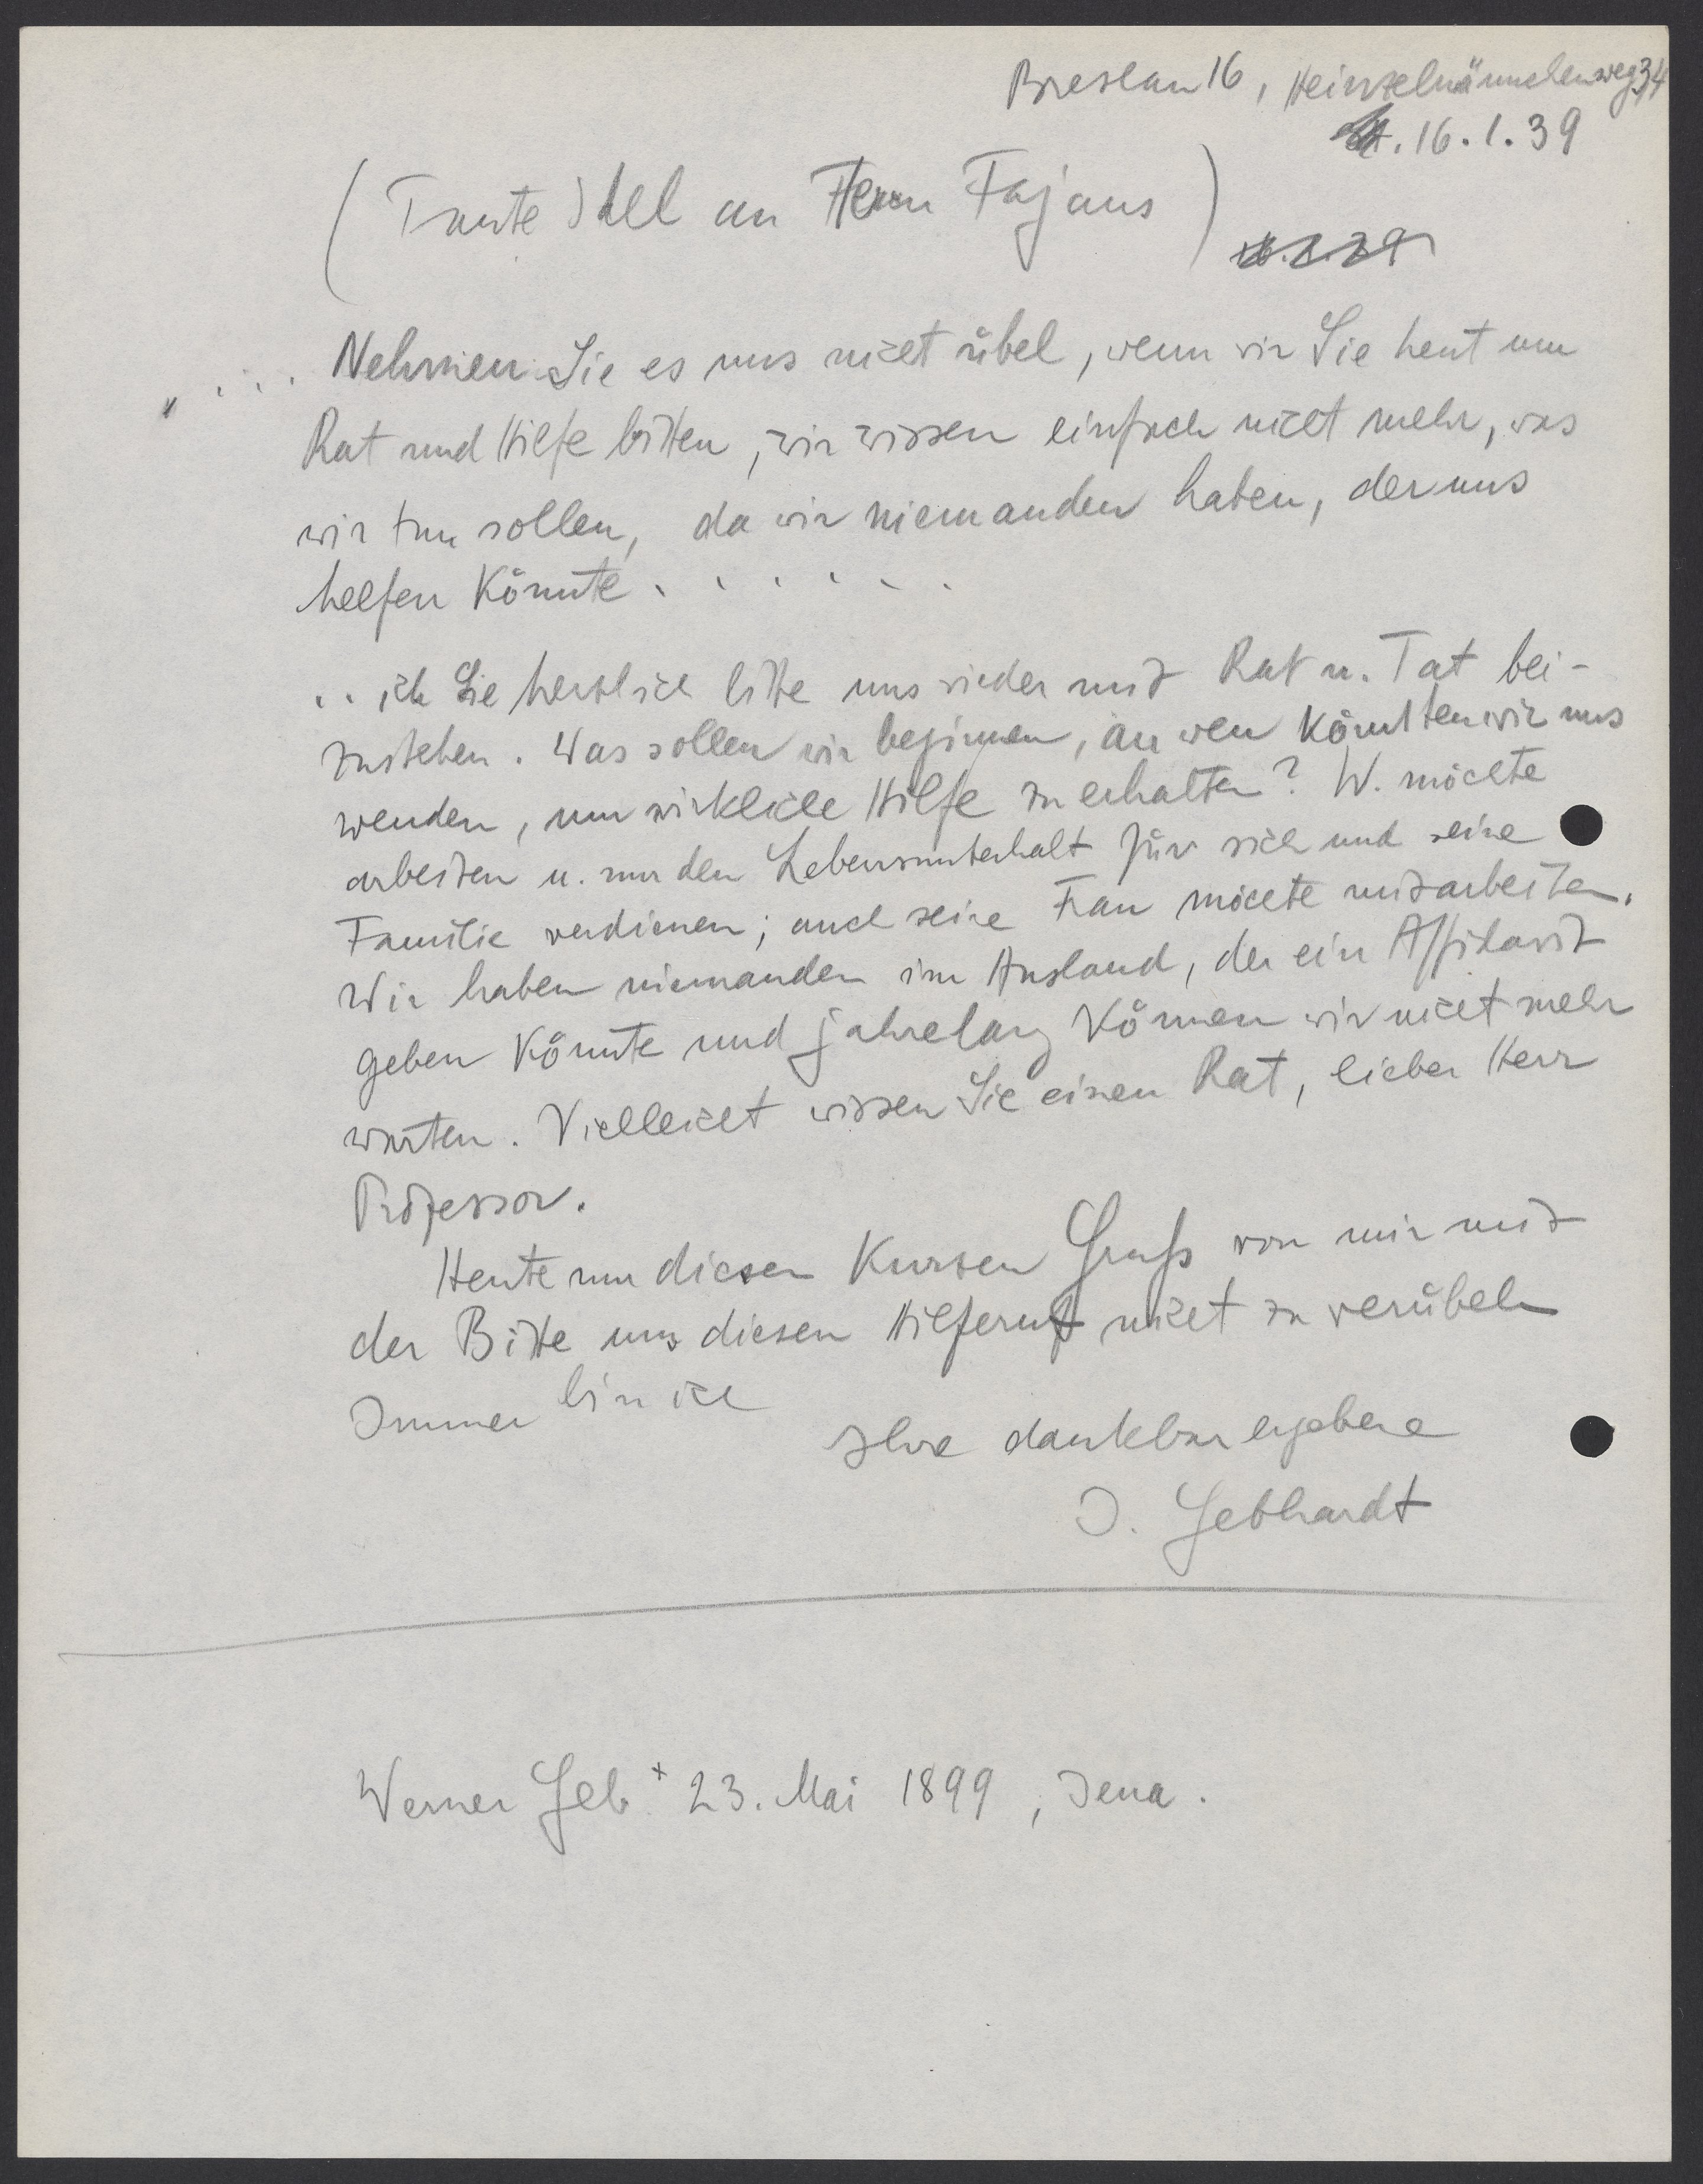 Breslau 16, Heinzelmännchenweg 34
16.1.39
(Tante Idel an Herrn Fajans)
„ ... Nehmen Sie es uns nicht übel, wenn wir Sie heut um
Rat und Hilfe bitten, wir wissen einfach nicht mehr, was
wir tun sollen, da wir niemanden haben, der uns
helfen könnte . . . . . .
.. ich Sie herzlich bitte uns wieder mit Rat u. Tat bei-
zustehen. Was sollen wir beginnen, an wen könnten wir uns
wenden, um wirkliche Hilfe zu erhalten? W. möchte
arbeiten u. nur den Lebensunterhalt für sich und seine
Familie verdienen; auch seine Frau möchte mitarbeiten.
Wir haben niemanden im Ausland, der ein Affidavit
geben könnte und jahrelang können wir nicht mehr
warten. Vielleicht wissen Sie einen Rat, lieber Herr
Professor.
Heute nur diesen kurzen Gruß von mir mit
der Bitte uns diesen Hilferuf nicht zu verübeln
Immer bin ich
Ihre dankbar ergebene
I. Gebhardt
Werner Geb. + 23. Mai 1899, Jena.